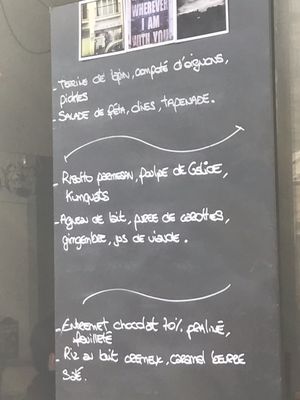 WHEREVER
I AM
WITH YOU
- Terrine de lapin, compoté d'oignons,
pickles
- Salade de féta, olives, tapenade.
- Risotto parmesan, poulpe de Galice,
Kumquats
- Agneau de lait, purée de carottes,
gingembre, jus de viande.
- Entremet chocolat 70% praliné,
feuilleté
- Riz au lait crémeux, caramel beurre
salé.